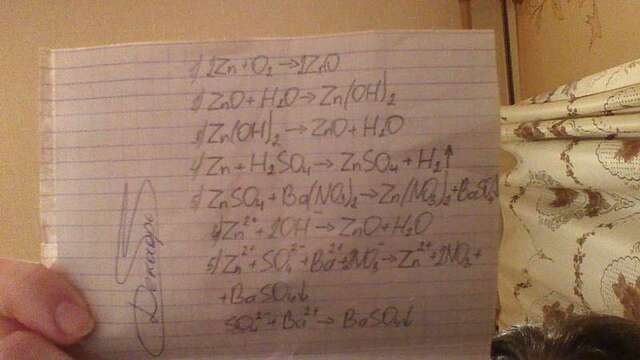 1) 2Zn + O₂ → 2ZnO
2) ZnO + H₂O → Zn(OH)₂
3) Zn(OH)₂ → ZnO + H₂O
4) Zn + H₂SO₄ → ZnSO₄ + H₂↑
5) ZnSO₄ + Ba(NO₃)₂ → Zn(NO₃)₂ + BaSO₄
3) Zn²⁺ + 2OH⁻ → ZnO + H₂O
5) Zn²⁺ + SO₄²⁻ + Ba²⁺ + 2NO₃⁻ → Zn²⁺ + 2NO₃ +
+ BaSO₄↓
SO₄²⁻ + Ba²⁺ → BaSO₄↓